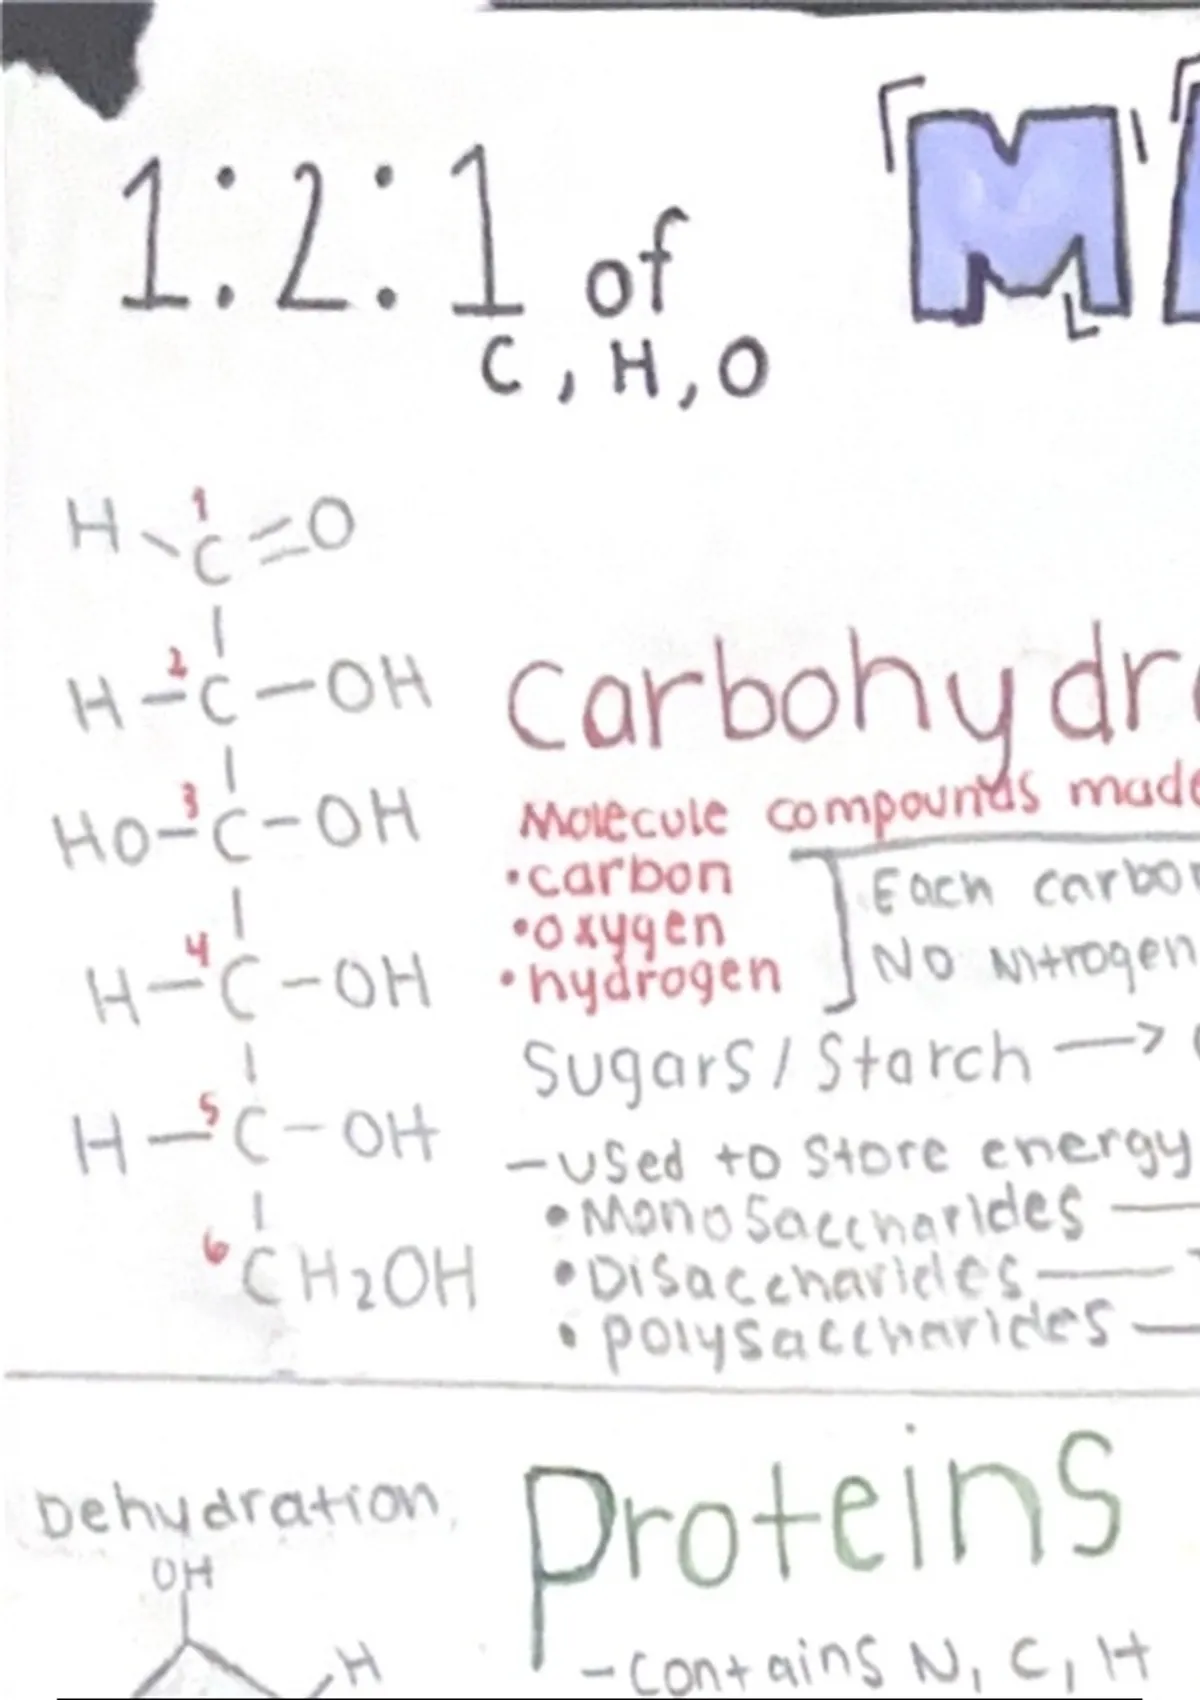 1:2:1 of
C, H, O
M
H 1 C=O
H-2 C-OH
HO-3 C-OH
H-4 C-OH
H-5 C-OH
6 CH2OH
Carbohydr
Molecule compounds made
•carbon
•oxygen
•hydrogen
Each carbon
No Nitrogen
Sugars/Starch →
-used to store energy
•Monosaccharides —
•Disaccharides —
•polysaccharides —
Dehydration
OH
H
Proteins
-contains N, C, H